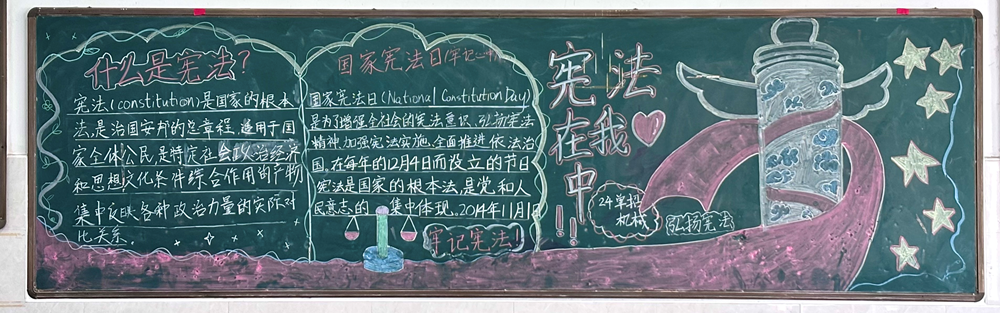 什么是宪法?
宪法(constitution)是国家的根本
法,是治国安邦的总章程,适用于国
家全体公民,是特定社会政治经济
和思想文化条件综合作用的产物
集中反映各种政治力量的实际对
比关系.
国家宪法日(牢记心中)
国家宪法日(National Constitution Day)
是为了增强全社会的宪法意识,弘扬宪法
精神,加强宪法实施,全面推进依法治
国,在每年的12月4日而设立的节日
宪法是国家的根本法,是党和人
民意志的 集中体现。2014年11月1日
牢记宪法!
宪法
在我
中!!
24单招
机械
弘扬宪法